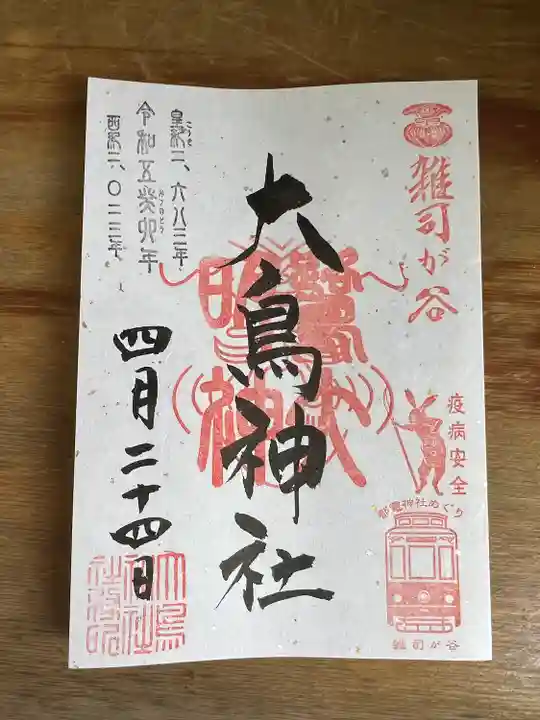 雑司が谷
疫病安全
都電神社めぐり
雑司が谷
大鳥神社
皇紀二、六八三年
令和五癸卯年
みずのとう
西紀二、〇二三年
四月二十四日
大鳥
神社